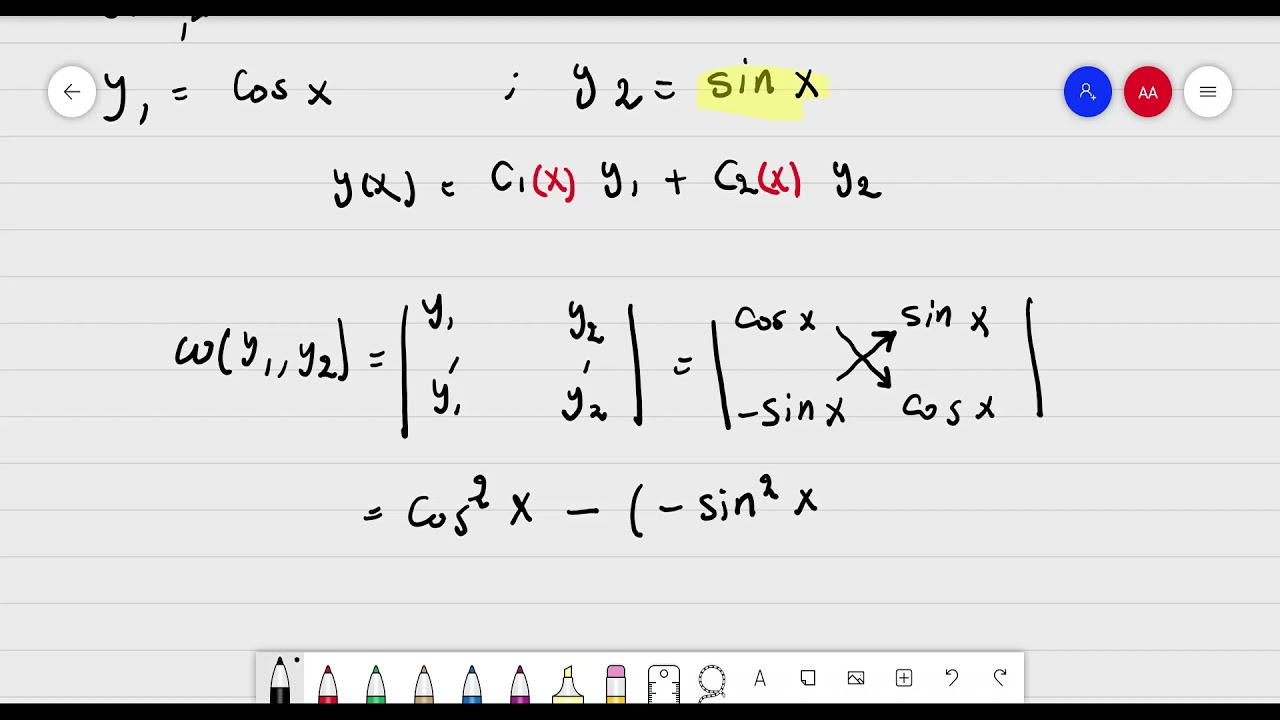 y₁ = cos x ; y₂ = sin x
AA
y(x) = C₁(x) y₁ + C₂(x) y₂
w(y₁, y₂) = | y₁ y₂ | = | cos x sin x |
y₁' y₂' -sin x cos x
= cos² x - (- sin² x
A